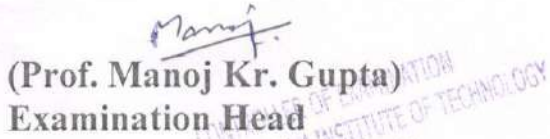 Manoj
(Prof. Manoj Kr. Gupta)
Examination Head
OF
INSTITUTE OF TECHNOLOGY